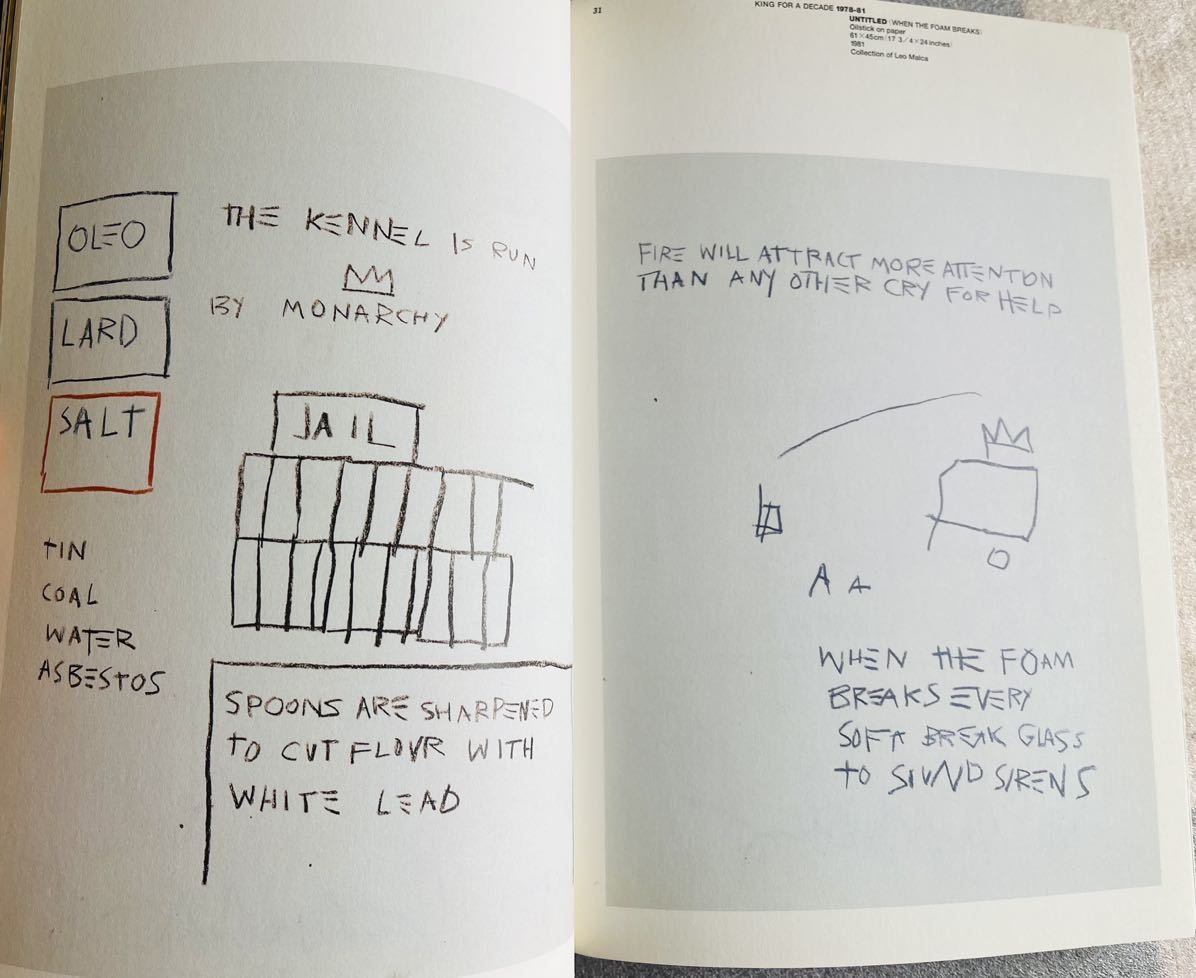 OLEO
LARD
SALT
TIN
COAL
WATER
ASBESTOS
THE KENNEL IS RUN
BY MONARCHY
JAIL
SPOONS ARE SHARPENED
TO CUT FLOUR WITH
WHITE LEAD
31
KING FOR A DECADE 1978-81
UNTITLED (WHEN THE FOAM BREAKS)
Oilstick on paper
61×45cm (17 3/4×24 inches)
1981
Collection of Leo Malca
FIRE WILL ATTRACT MORE ATTENTION
THAN ANY OTHER CRY FOR HELP
A A
WHEN THE FOAM
BREAKS EVERY
SOFA BREAK GLASS
TO SOUND SIRENS